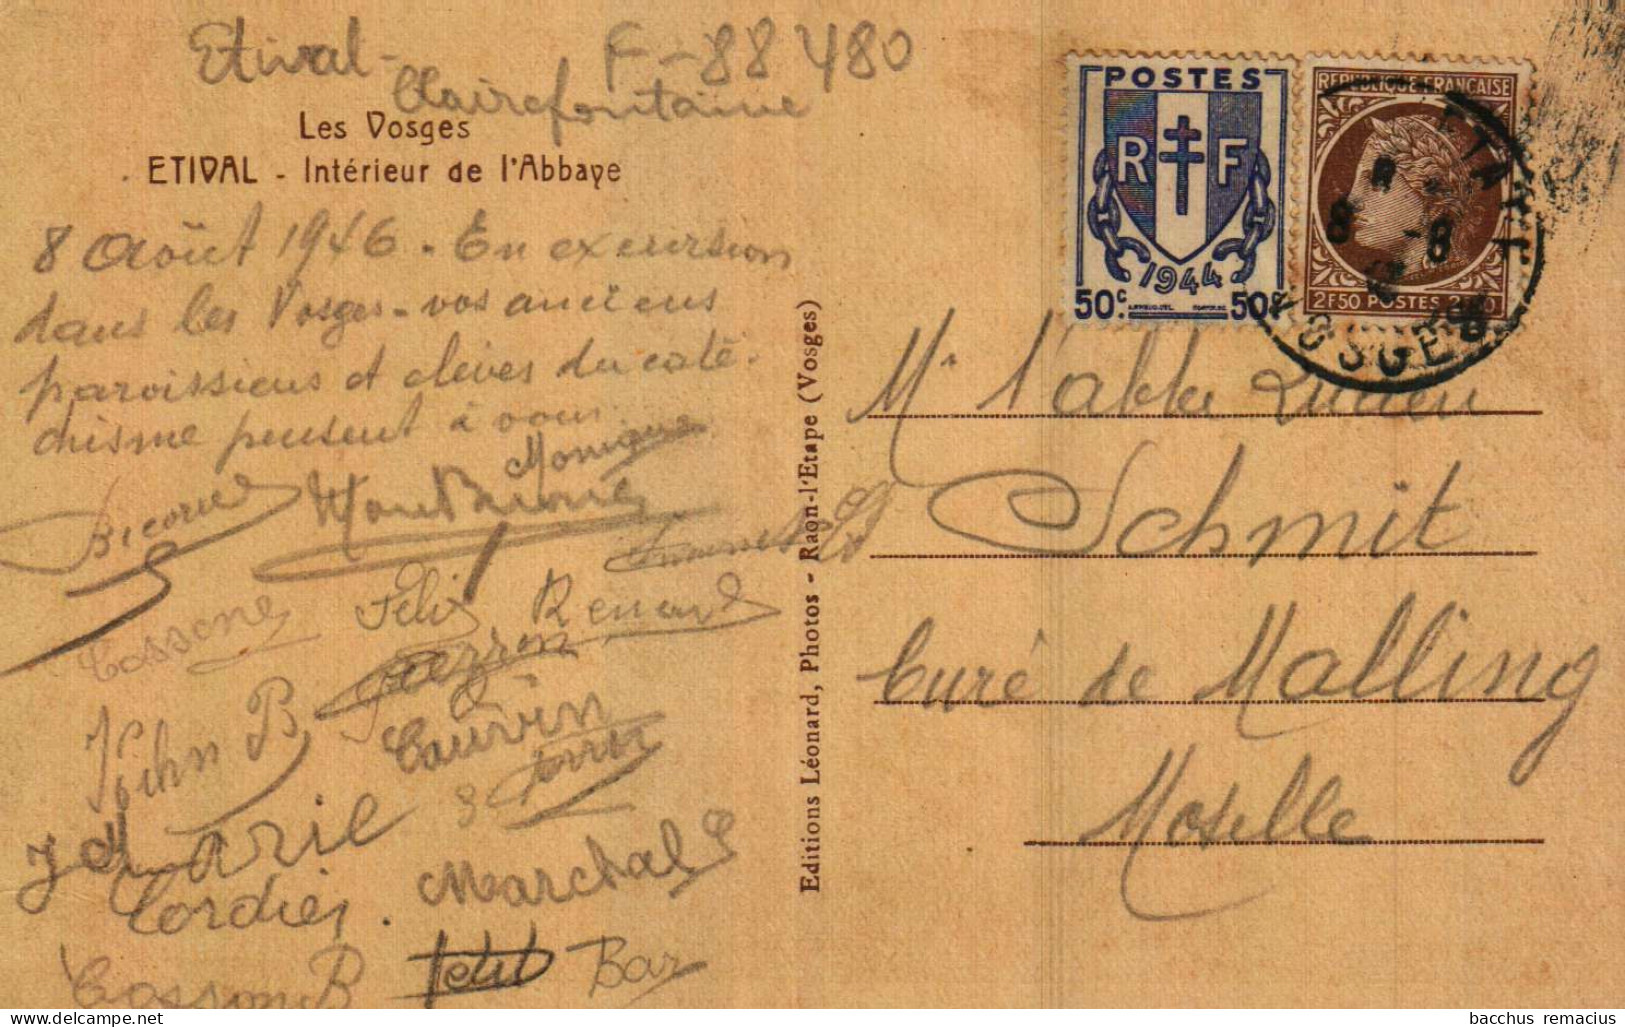 Etival-
Clairefontaine
F-88480
Les Vosges
ETIVAL - Intérieur de l'Abbaye
8 Août 1946 - En excursion
dans les Vosges - vos anciens
paroissiens et élèves du caté-
chisme pensent à vous
Monique
Félix Renard
Perron
Cauvin
Kihn B
Marchal P
Cordier
Casson B Petit Bar
Editions Léonard, Photos - Raon-l'Etape (Vosges)
POSTES
RF
1944
50c. 50c
REPUBLIQUE FRANÇAISE
2F50 POSTES
8 -8
VOSGES
Mr l'abbé Lucien
Schmit
Curé de Malling
Moselle
bacchus remacius